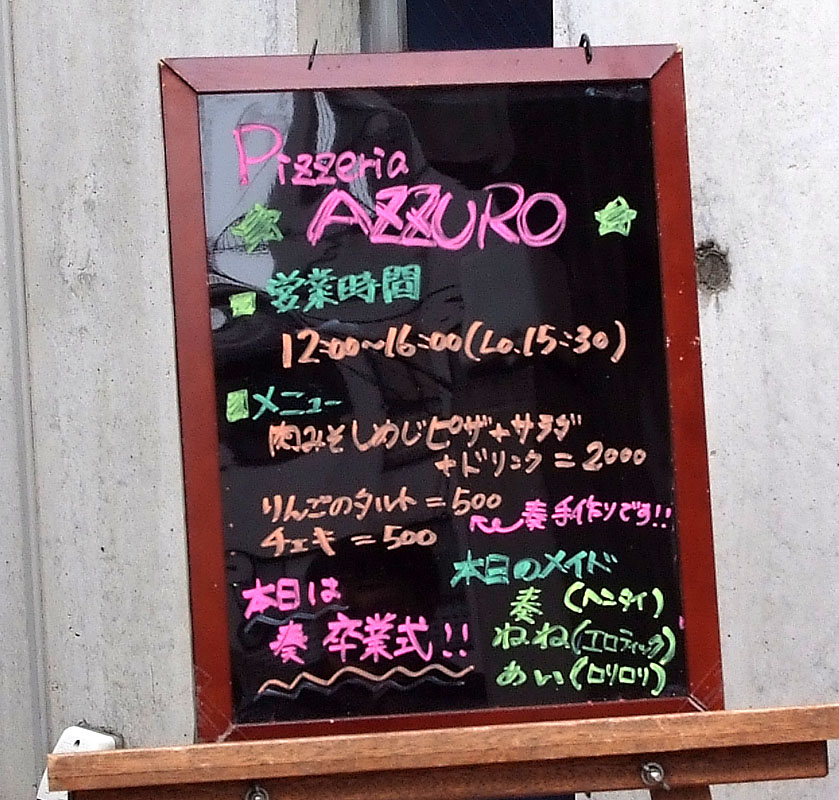 Pizzeria
AZZURO
営業時間
12:00~16:00(Lo.15:30)
メニュー
肉みそしめじピザ+サラダ
+ドリンク=2000
りんごのタルト=500
奏手作りです!!
チェキ=500
本日は
奏 卒業式!!
本日のメイド
奏(ヘンタイ)
ねね(エロティック)
あい(ロリロリ)